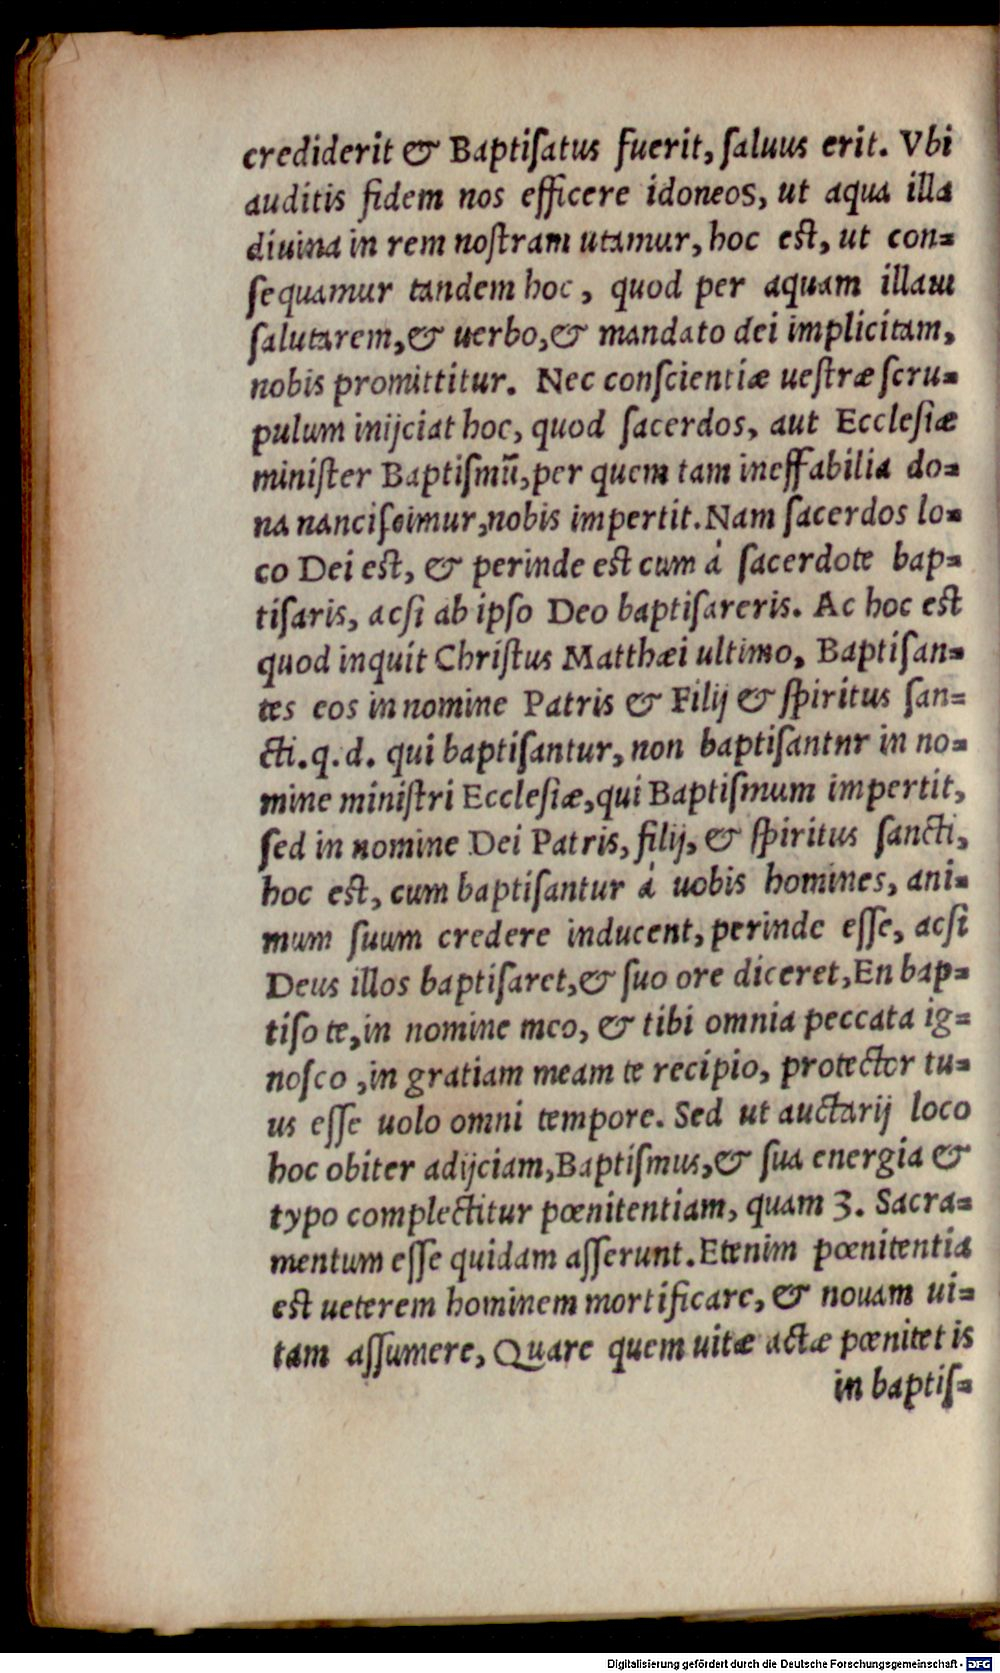 crediderit & Baptiſatus fuerit, ſaluus erit. Vbi
auditis fidem nos efficere idoneos, ut aqua illa
diuina in rem noſtram utamur, hoc eſt, ut con⸗
ſequamur tandem hoc, quod per aquam illam
ſalutarem, & uerbo, & mandato dei implicitam,
nobis promittitur. Nec conſcientiæ ueſtræ ſcru⸗
pulum inijciat hoc, quod ſacerdos, aut Eccleſiæ
miniſter Baptiſmū, per quem tam ineffabilia do⸗
na nanciſcimur, nobis impertit. Nam ſacerdos lo⸗
co Dei eſt, & perinde eſt cum à ſacerdote bap⸗
tiſaris, acſi ab ipſo Deo baptiſareris. Ac hoc eſt
quod inquit Chriſtus Matthæi ultimo, Baptiſan⸗
tes eos in nomine Patris & Filij & ſpiritus ſan⸗
cti. q. d. qui baptiſantur, non baptiſantnr in no⸗
mine miniſtri Eccleſiæ, qui Baptiſmum impertit,
ſed in nomine Dei Patris, filij, & ſpiritus ſancti,
hoc eſt, cum baptiſantur à uobis homines, ani⸗
mum ſuum credere inducent, perinde eſſe, acſi
Deus illos baptiſaret, & ſuo ore diceret, En bap⸗
tiſo te, in nomine meo, & tibi omnia peccata ig⸗
noſco, in gratiam meam te recipio, protector tu⸗
us eſſe uolo omni tempore. Sed ut auctarij loco
hoc obiter adijciam, Baptiſmus, & ſua energia &
typo complectitur pœnitentiam, quam 3. Sacra⸗
mentum eſſe quidam aſſerunt. Etenim pœnitentia
eſt ueterem hominem mortificare, & nouam ui⸗
tam aſſumere, Quare quem uitæ actæ pœnitet is
in baptiſ⸗
Digitalisierung gefördert durch die Deutsche Forschungsgemeinschaft - DFG